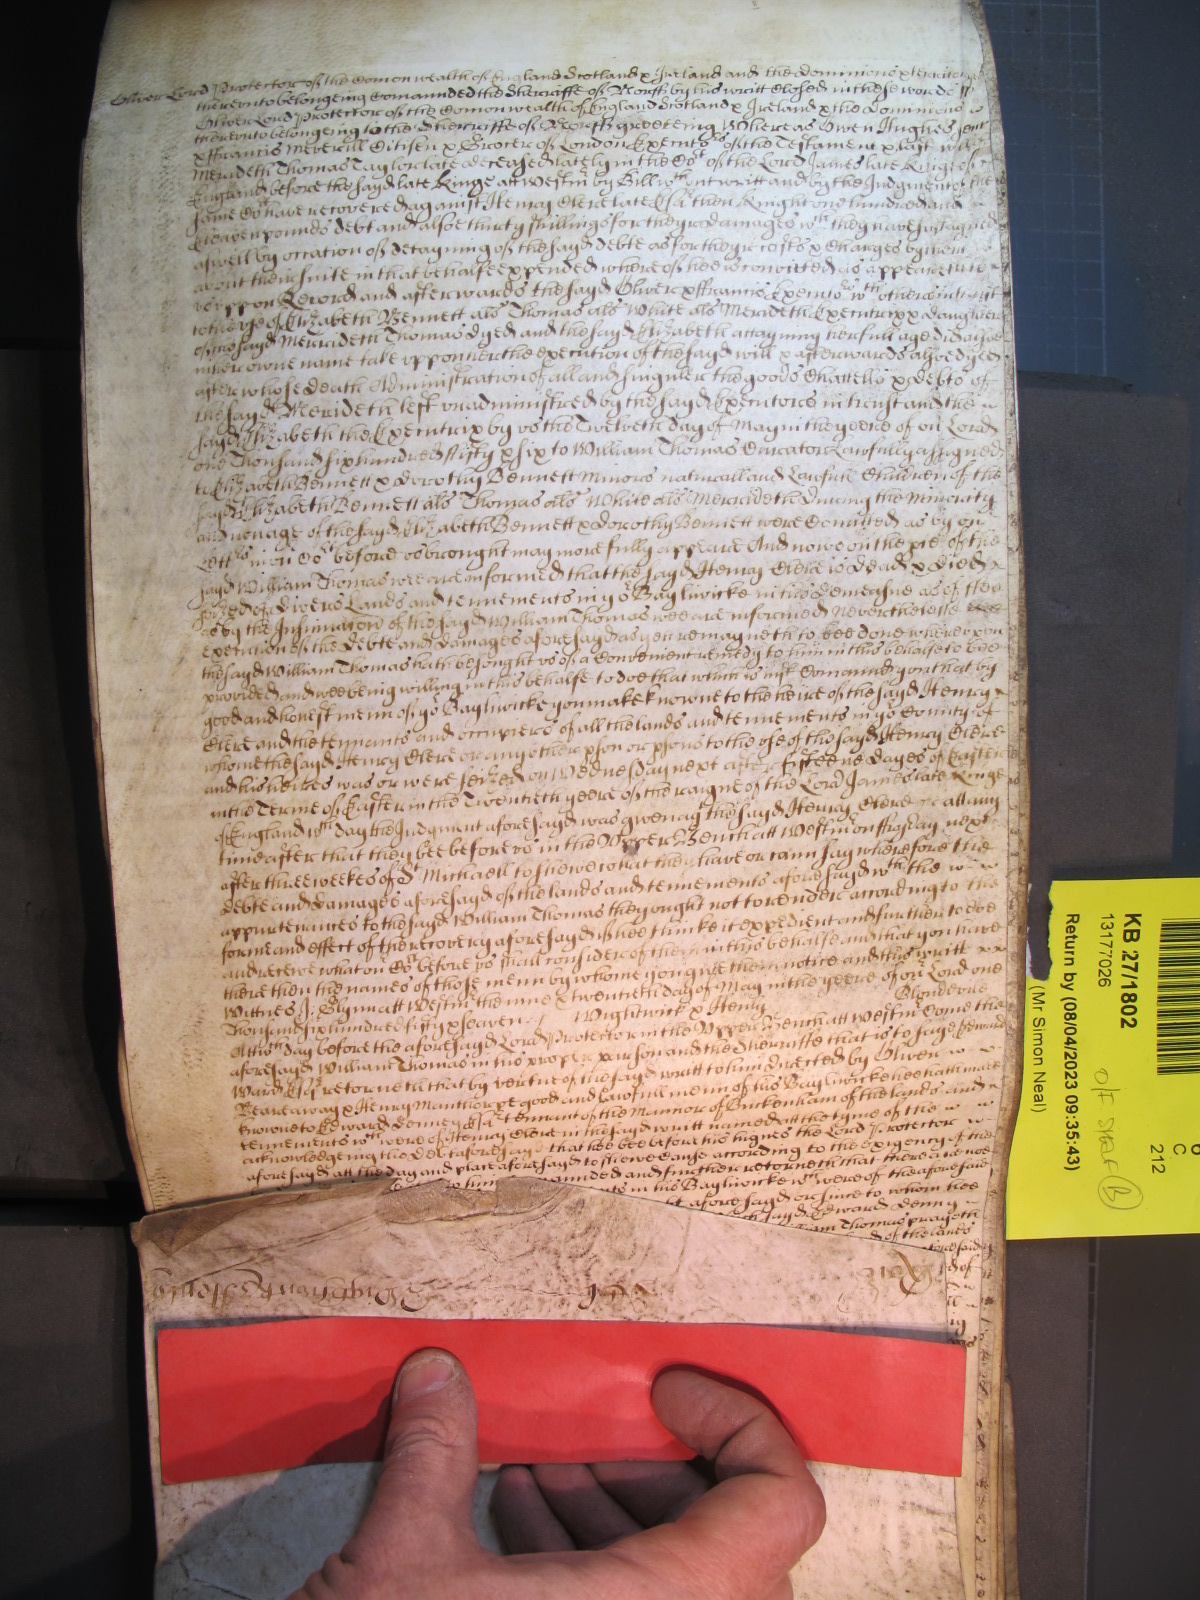 Oliver Lord Protector of the Comonwealth of England Scotland & Ireland and the dominions & territories
thereunto belongeing Comaunded the Sherriffe of Norff by his writt Closed in these words
Oliver Lord Protector of the Comonwealth of England Scotland & Ireland & the dominions
thereunto belongeing to the Sherriffe of Norff greeteing Whereas Owen Hughes gent
& ffrancis Mererill Citizen & Grocer of London Executors of the Testament & last will
Merideth Thomas Taylor late deceased lately in the Cot of the Lord James late Kinge of
England before the sayd late Kinge att Westm by Bill wthout writt and by the Judgment of the
same Cot have recovered against Henry Clere late then Knight one hundred and
Eleaven pounds debt and alsoe thirty shillings for theyre damages wch they have sustayned
aswell by occation of detayning of the sayd debte as for theyre costs & Charges by them
about their suite in that behalfe expended whereof hee is convicted as appeareth to
us uppon Record and afterwards the sayd Oliver & ffrancis Executors wth others in trust
to the use of Elizabeth Bennett als Thomas als White als Merideth Executrix & daughter
of the sayd Merrideth Thomas dyed and the sayd Elizabeth attayning her full age did alsoe
in her owne name take uppon her the execution of the sayd will & afterwards alsoe dyed
after whose death Administration of all and singuler the goods Chattells & debts of
the sayd Merideth left unadministred by the sayd Executors in trust and the
sayd Elizabeth the Executrix by us the Twelveth day of May in the yeere of our Lord
one Thousand six hundred ffifty & six to William Thomas Curator Lawfully assigned
to Elizabeth Bennett & Dorothy Bennett Minors naturall and Lawfull Children of the
sayd Elizabeth Bennett als Thomas als White als Merrideth during the Minority
and nonage of the sayd Elizabeth Bennett & Dorothy Bennett were Comitted as by our
Lettrs in our Cot before us brought may more fully appeare And nowe on the pte of the
sayd William Thomas wee are informed that the sayd Henry Clere is dead & died
seized of divers Lands and tennements in yor Bayliwicke in his demeasne as of fee
as by the Insinuation of the sayd William Thomas wee are informed neverthelesse
execution of the debte and damages aforesayd as yett remayneth to bee done whereupon
the sayd William Thomas hath besought us of a Convenient remedy to him in this behalfe to bee
provided and wee being willing in this behalfe to doe that which is just Comaund you that by
good and honest menn of yor Bayliwicke you make knowne to the heire of the sayd Henry
Clere and the tennants and occupiers of all the lands and tennements in yor County of
whome the sayd Henry Clere or any other pson or psons to the use of the sayd Henry Clere
and his heires was or were seized on Wednesday next after fifteene dayes of Easter
in the Terme of Easter in the Twentieth yeere of the raigne of the Lord James late Kinge
of England wch day the Judgment aforesayd was given agt the sayd Henry Clere or att any
time after that they bee before us in the Upper Bench att Westm on ffryday next
after three weekes of St Michaell to shewe what they have or cann say wherefore the
debte and damages aforesayd of the lands and tennements aforesayd wth the
appurtenances to the sayd William Thomas they ought not to render according to the
forme and effect of the recovery aforesayd if hee thinke it expedient and further to doe
and receive what our Cot before us shall consider of them in this behalfe and that you have
there then the names of those menn by whome you give them notice and this writt
Wittnes J. Glynn att Westm the nine & twentieth day of May in the yeere of our Lord one
Thousand six hundred fifty & seaven Wightwick & Henly Blondevile
Att wch day before the aforesayd Lord Protector in the Upper Bench att Westm Come the
aforesayd William Thomas in his proper person and the Sherriffe that is to saye Edward
Ward Esqr retorneth that by vertue of the sayd writt to him directed by Oliver
Reareaway & Henry Manthorpe good and lawfull menn of his Bayliwicke hee hath made
knowne to Edward Denny Esqr tennant of the Mannor of Buckenham of the lands and
tennements wch were of Henry Clere in the sayd writt named att the tyme of the
acknowledgeing the debt aforesayd that hee bee before his highnes the Lord Protector
aforesayd att the day and place aforesayd to shewe Cause according to the exigency of the
and further retorneth that there are noe
in this Bayliwicke wch were of the aforesaid
aforesayd or since to whom hee
sayd Edward Denny
Thomas prayeth
of the lands
KB 27/1802
13177026
Return by (08/04/2023 09:35:43)
(Mr Simon Neal)
O/F. Staff (B)
C
212